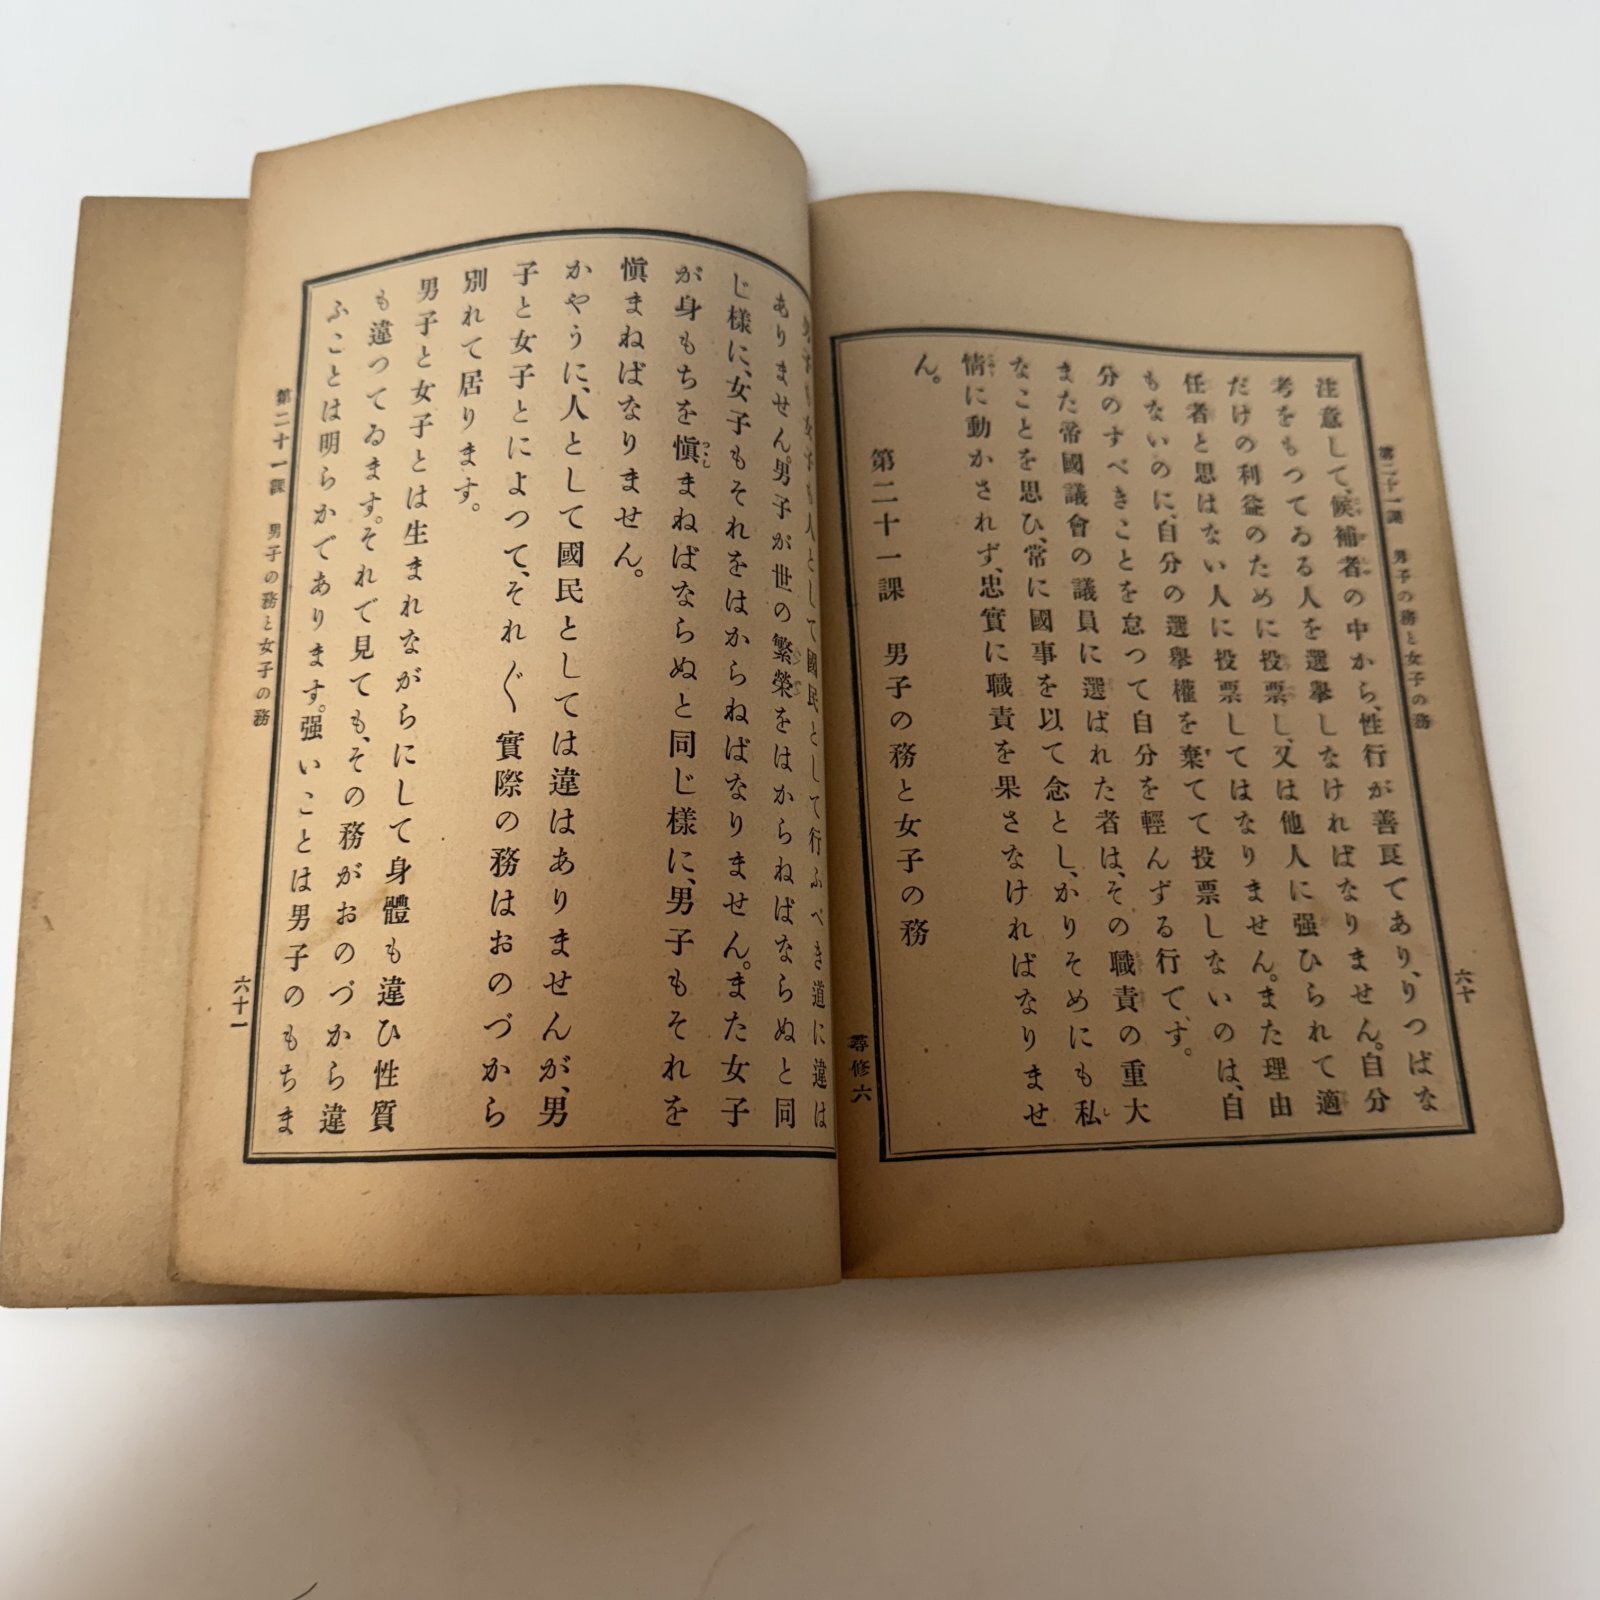 第二十一課　男子の務と女子の務
六十
注意して、候補者の中から、性行が善良であり、りつぱな
考をもつてゐる人を選擧しなければなりません。自分
だけの利益のために投票し、又は他人に强ひられて適
任者と思はない人に投票してはなりません。また理由
もないのに、自分の選擧權を棄てて投票しないのは、自
分のすべきことを怠つて自分を輕んずる行です。
また帝國議會の議員に選ばれた者は、その職責の重大
なことを思ひ、常に國事を以て念とし、かりそめにも私
情に動かされず、忠實に職責を果さなければなりませ
ん。
第二十一課　男子の務と女子の務
尋修六
男子も女子も人として國民として行ふべき道に違は
ありません。男子が世の繁榮をはからねばならぬと同
じ樣に、女子もそれをはからねばなりません。また女子
が身もちを愼まねばならぬと同じ樣に、男子もそれを
愼まねばなりません。
かやうに、人として國民としては違はありませんが、男
子と女子とによつて、それ〴〵實際の務はおのづから
別れて居ります。
男子と女子とは生まれながらにして身體も違ひ性質
も違つてゐます。それで見ても、その務がおのづから違
ふことは明らかであります。强いことは男子のもちま
第二十一課　男子の務と女子の務
六十一